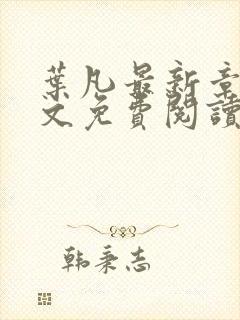 葉凡最新章
文免費閱讀
韩秉志